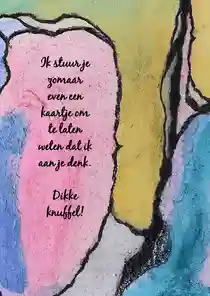 Ik stuur je
zomaar
even een
kaartje om
te laten
weten dat ik
aan je denk.
Dikke
knuffel!